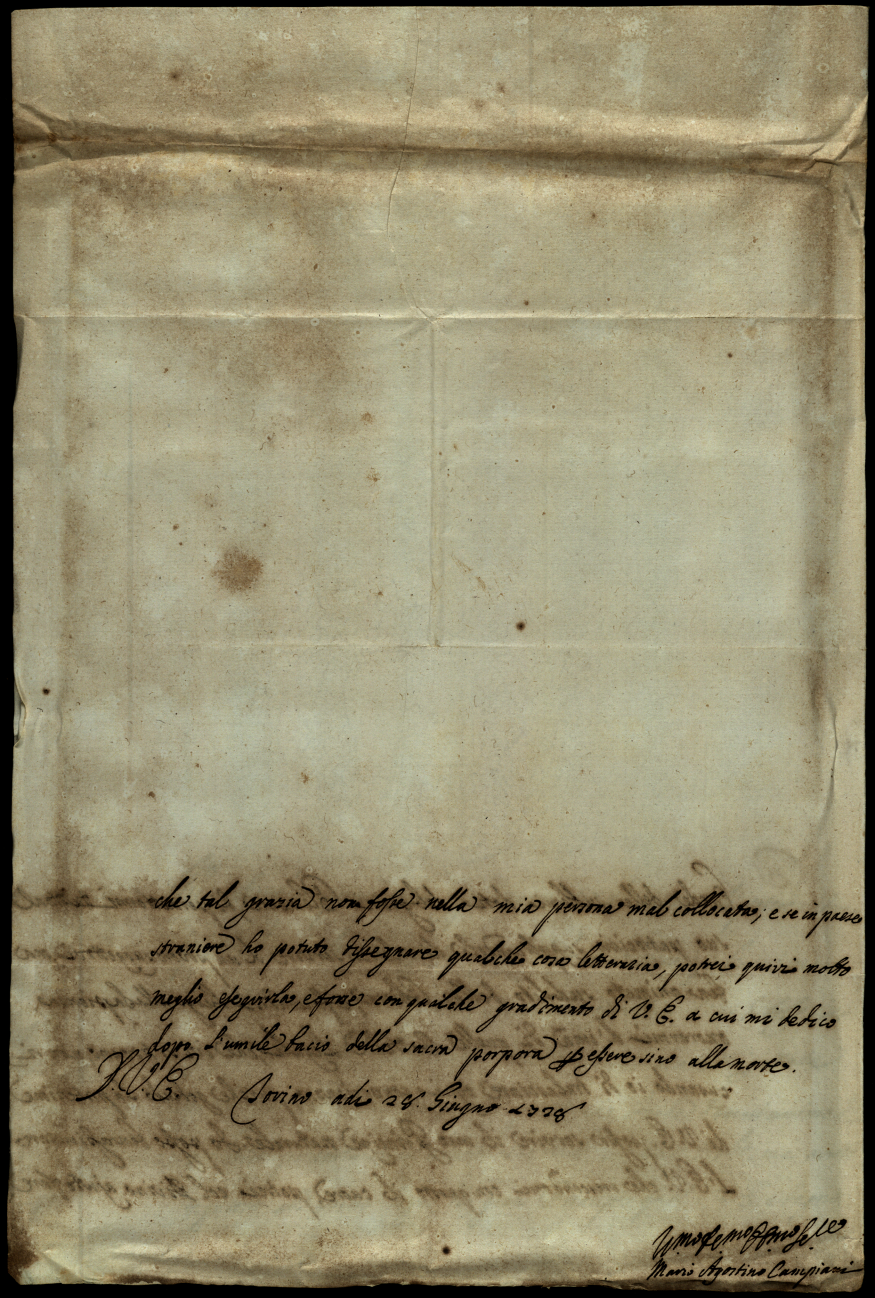 che tal grazia non fosse nella mia persona mal collocata; e se in paese
straniere ho potuto dissegnare qualche cosa letteraria, potrei quivi molto
meglio esseguirla, e forse con qualche gradimento di V. E. a cui mi dedico
dopo l'umile bacio della sacra porpora ꝑ essere sino alla morte.
D. V. E. Torino adi 28. Giugno 1728
Mario Agostino Campiani